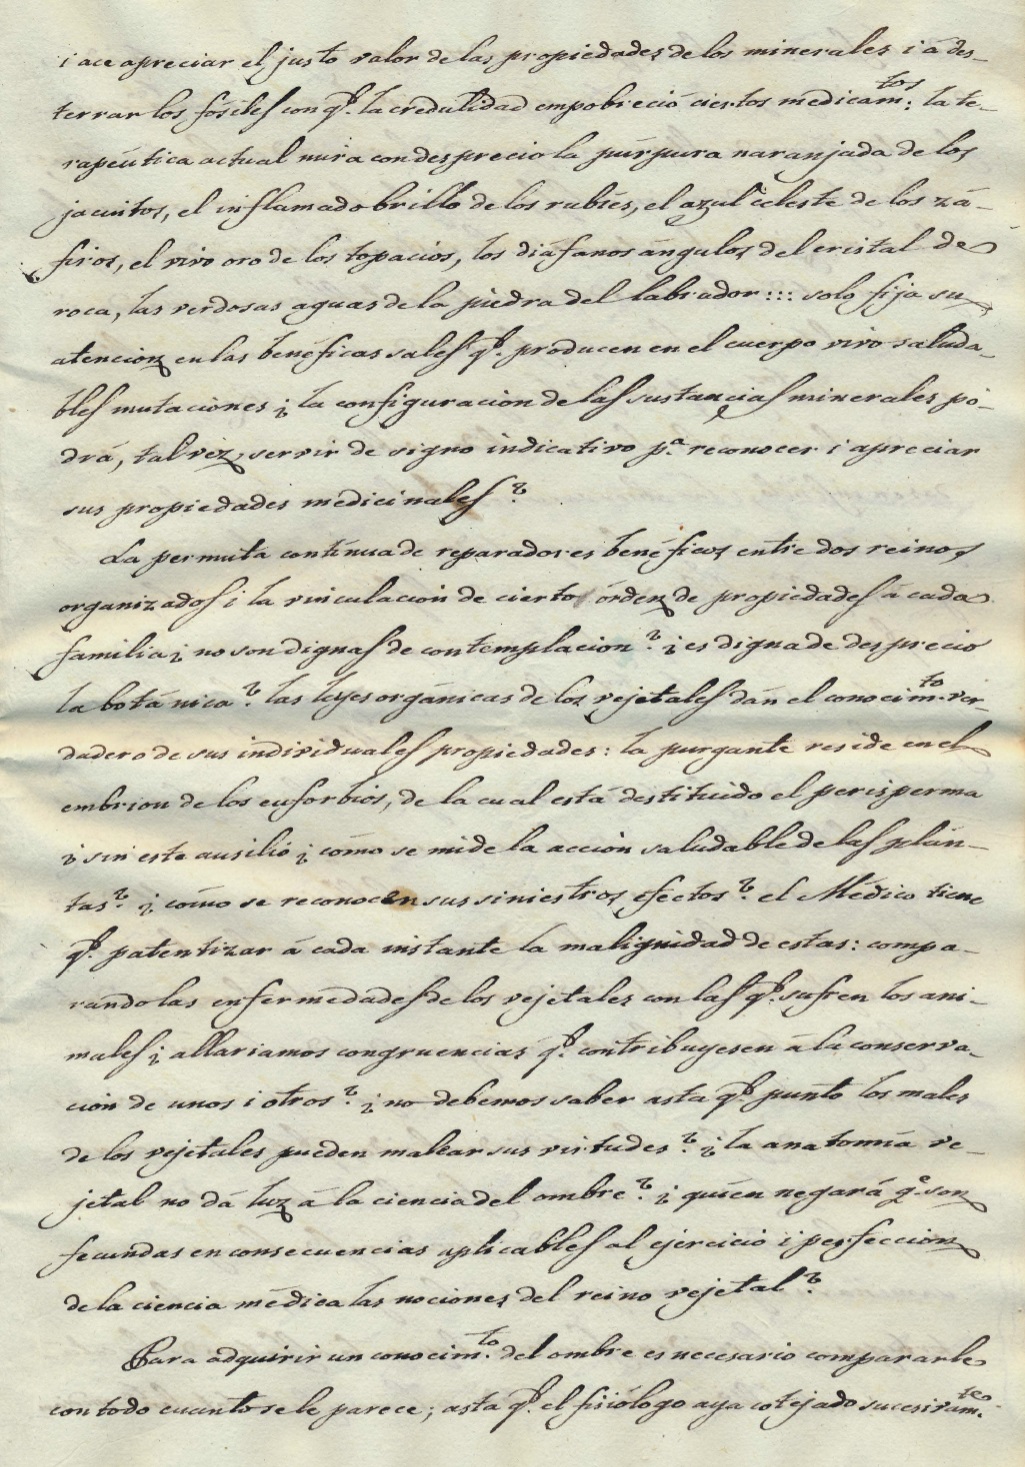 i ace apreciar el justo valor de las propiedades de los minerales i á des-
terrar los fósiles con q.e la credulidad empobreció ciertos medicam.tos: la te-
rapéutica actual mira con desprecio la púrpura naranjada de los
jacintos, el inflamado brillo de los rubíes, el azul celeste de los zá-
firos, el vivo oro de los topacios, los diáfanos ángulos del cristal de
roca, las verdosas aguas de la piedra del labrador::: solo fija su
atencion en las benéficas sales q.e producen en el cuerpo vivo saluda-
bles mutaciones ¿ la configuracion de las sustancias minerales po-
drá, tal vez, servir de signo indicativo p.a reconocer i apreciar
sus propiedades medicinales?
La permuta contínua de reparadores benéficos entre dos reinos
organizados i la vinculacion de cierto órden de propiedades á cada
familia ¿ no son dignas de contemplacion? ¿ es digna de desprecio
la botánica? las leyes orgánicas de los vejetales dán el conocim.to ver-
dadero de sus individuales propiedades: la purgante reside en el
embrion de los euforbios, de la cual está destituido el perisperma
i sin este ausilio ¿ cómo se mide la accion saludable de las plán-
tas? ¿ cómo se reconocen sus siniestros efectos? el Médico tiene
q.e patentizar á cada instante la malignidad de estas: compa-
rando las enfermedades de los vejetales con las q.e sufren los ani-
males ¿ allariamos congruencias q.e contribuyesen á la conserva-
ción de unos i otros? ¿ no debemos saber asta q.e punto los males
de los vejetales pueden malear sus virtudes? ¿ la anatomía ve-
jetal no dá luz á la ciencia del ombre? ¿ quien negará q.e son
fecundas en consecuencias aplicables al ejercicio i perfeccion
de la ciencia médica las nociones del reino vejetal?
Para adquirir un conocim.to del ombre es necesario compararle
con todo cuanto se le parece; asta q.e el fisiólogo aya cotejado sucesivam.te